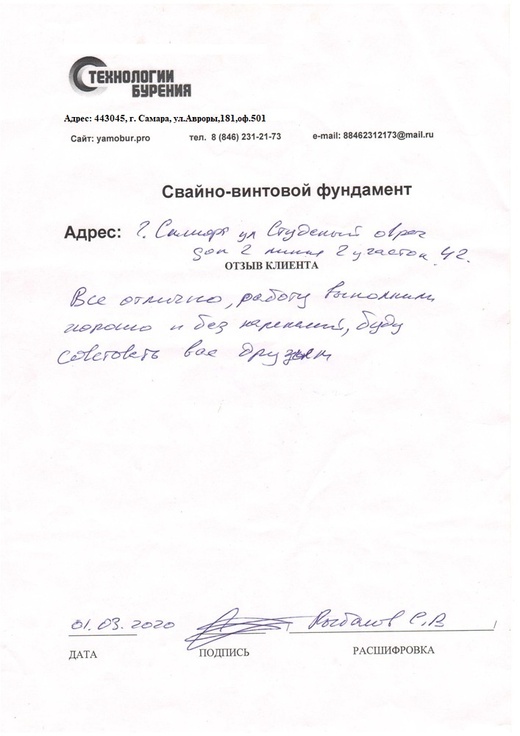 ТЕХНОЛОГИИ
БУРЕНИЯ
Адрес: 443045, г. Самара, ул.Авроры,181,оф.501
Сайт: yamobur.pro тел. 8 (846) 231-21-73 e-mail: 88462312173@mail.ru
Свайно-винтовой фундамент
Адрес: г. Самара ул Студеный овраг
доп 2 линия 2 участок 42.
ОТЗЫВ КЛИЕНТА
Все отлично, работу выполнили
хорошо и без нареканий, буду
советовать вас друзьям
01.03.2020 С.В
ДАТА ПОДПИСЬ РАСШИФРОВКА